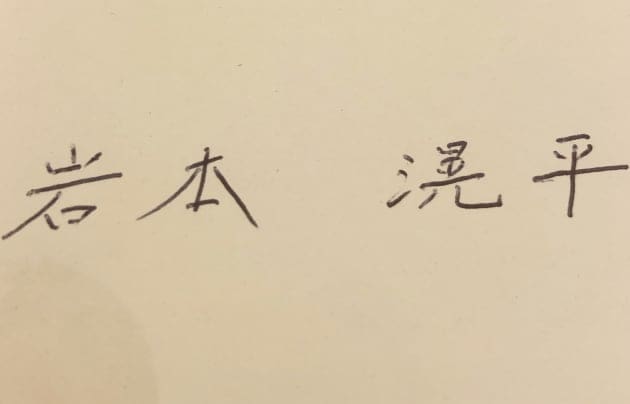 岩本 滉平